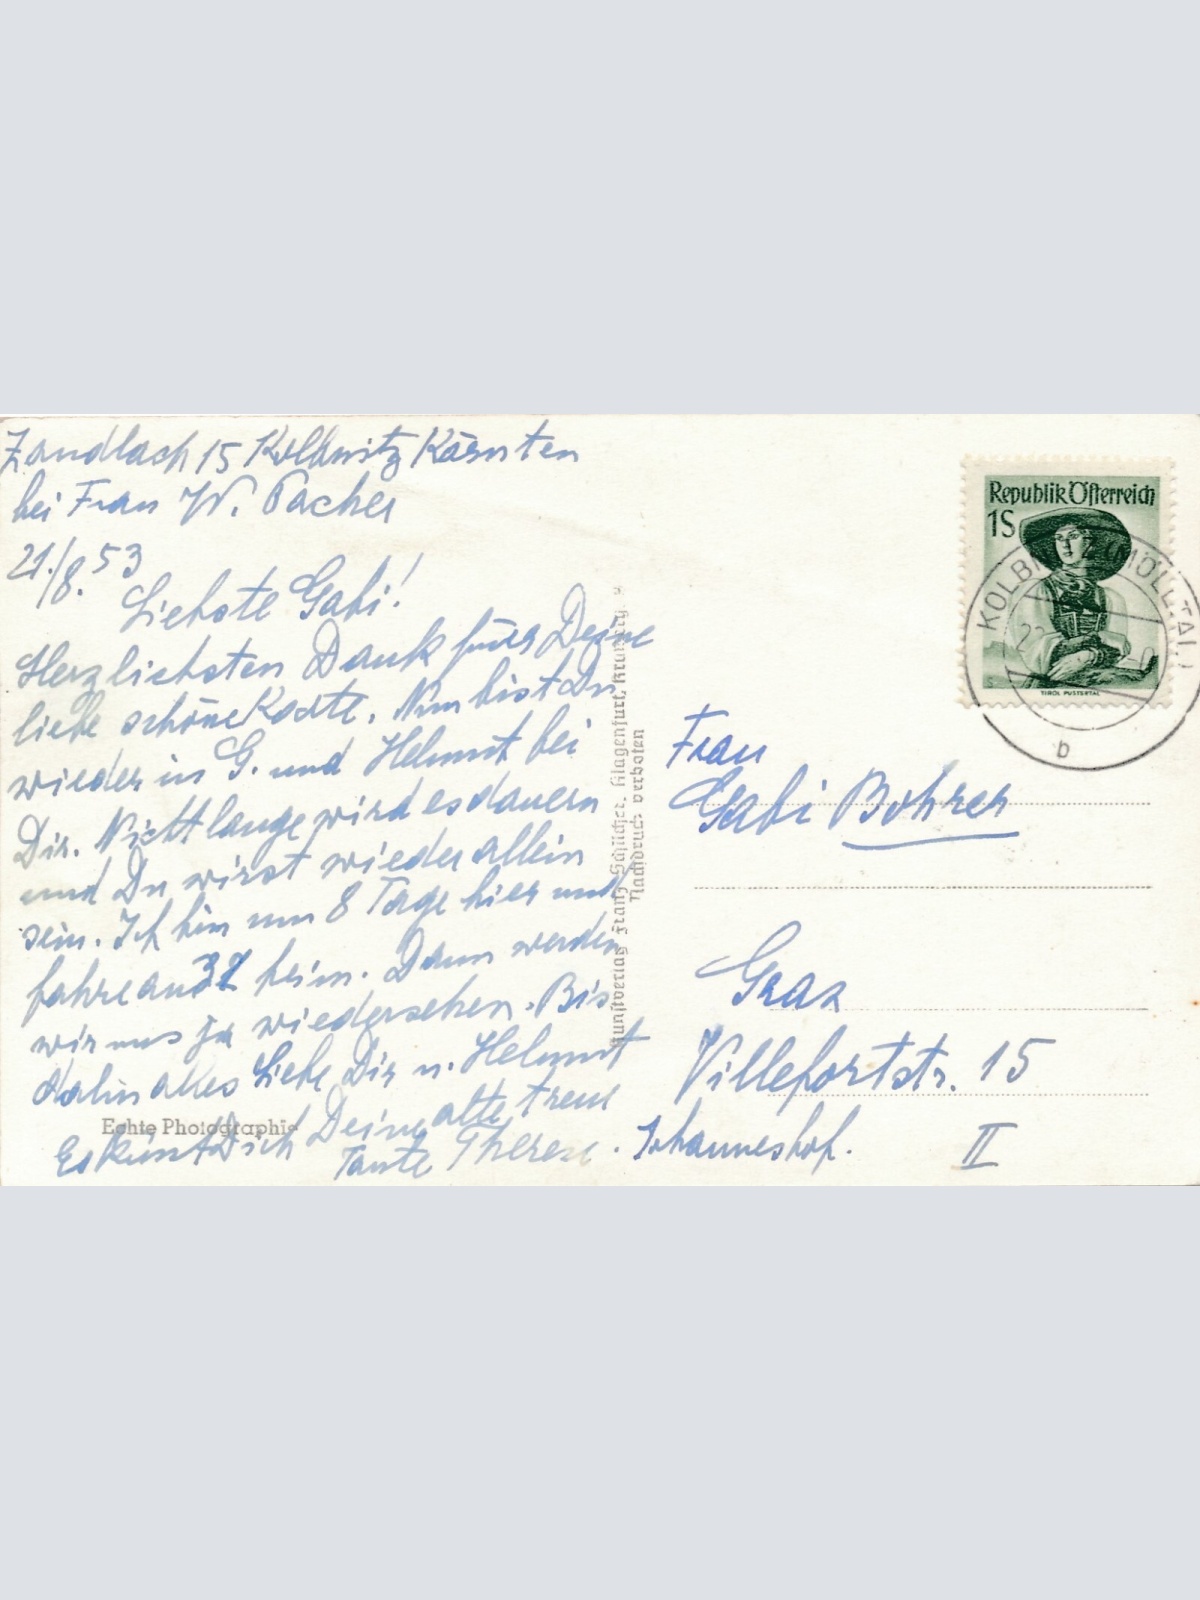 Zandlach 15 Kolbnitz Kärnten
bei Frau W. Pacher
21./8. 53
Liebste Gabi!
Herzlichsten Dank für Deine
liebe schöne Karte. Nun bist Du
wieder in G. und Helmut bei
Dir. Nicht lange wird es dauern
und Du wirst wieder allein
sein. Ich bin nun 8 Tage hier und
fahre am heim. Dann werden
wir uns ja wiedersehen. Bis
dahin alles Liebe Dir u. Helmut
Deine alte treue
Es küsst Dich
Tante Therese.
Echte Photographie
Kunstverlag Franz Schilcher, Klagenfurt,
Nachdruck verboten
Republik Österreich
1S
TIROL PUSTERTAL
KOLBN (MÖLLTAL)
22
b
Frau
Gabi Bohrer
Graz
Villefortstr. 15
Johanneshof. II